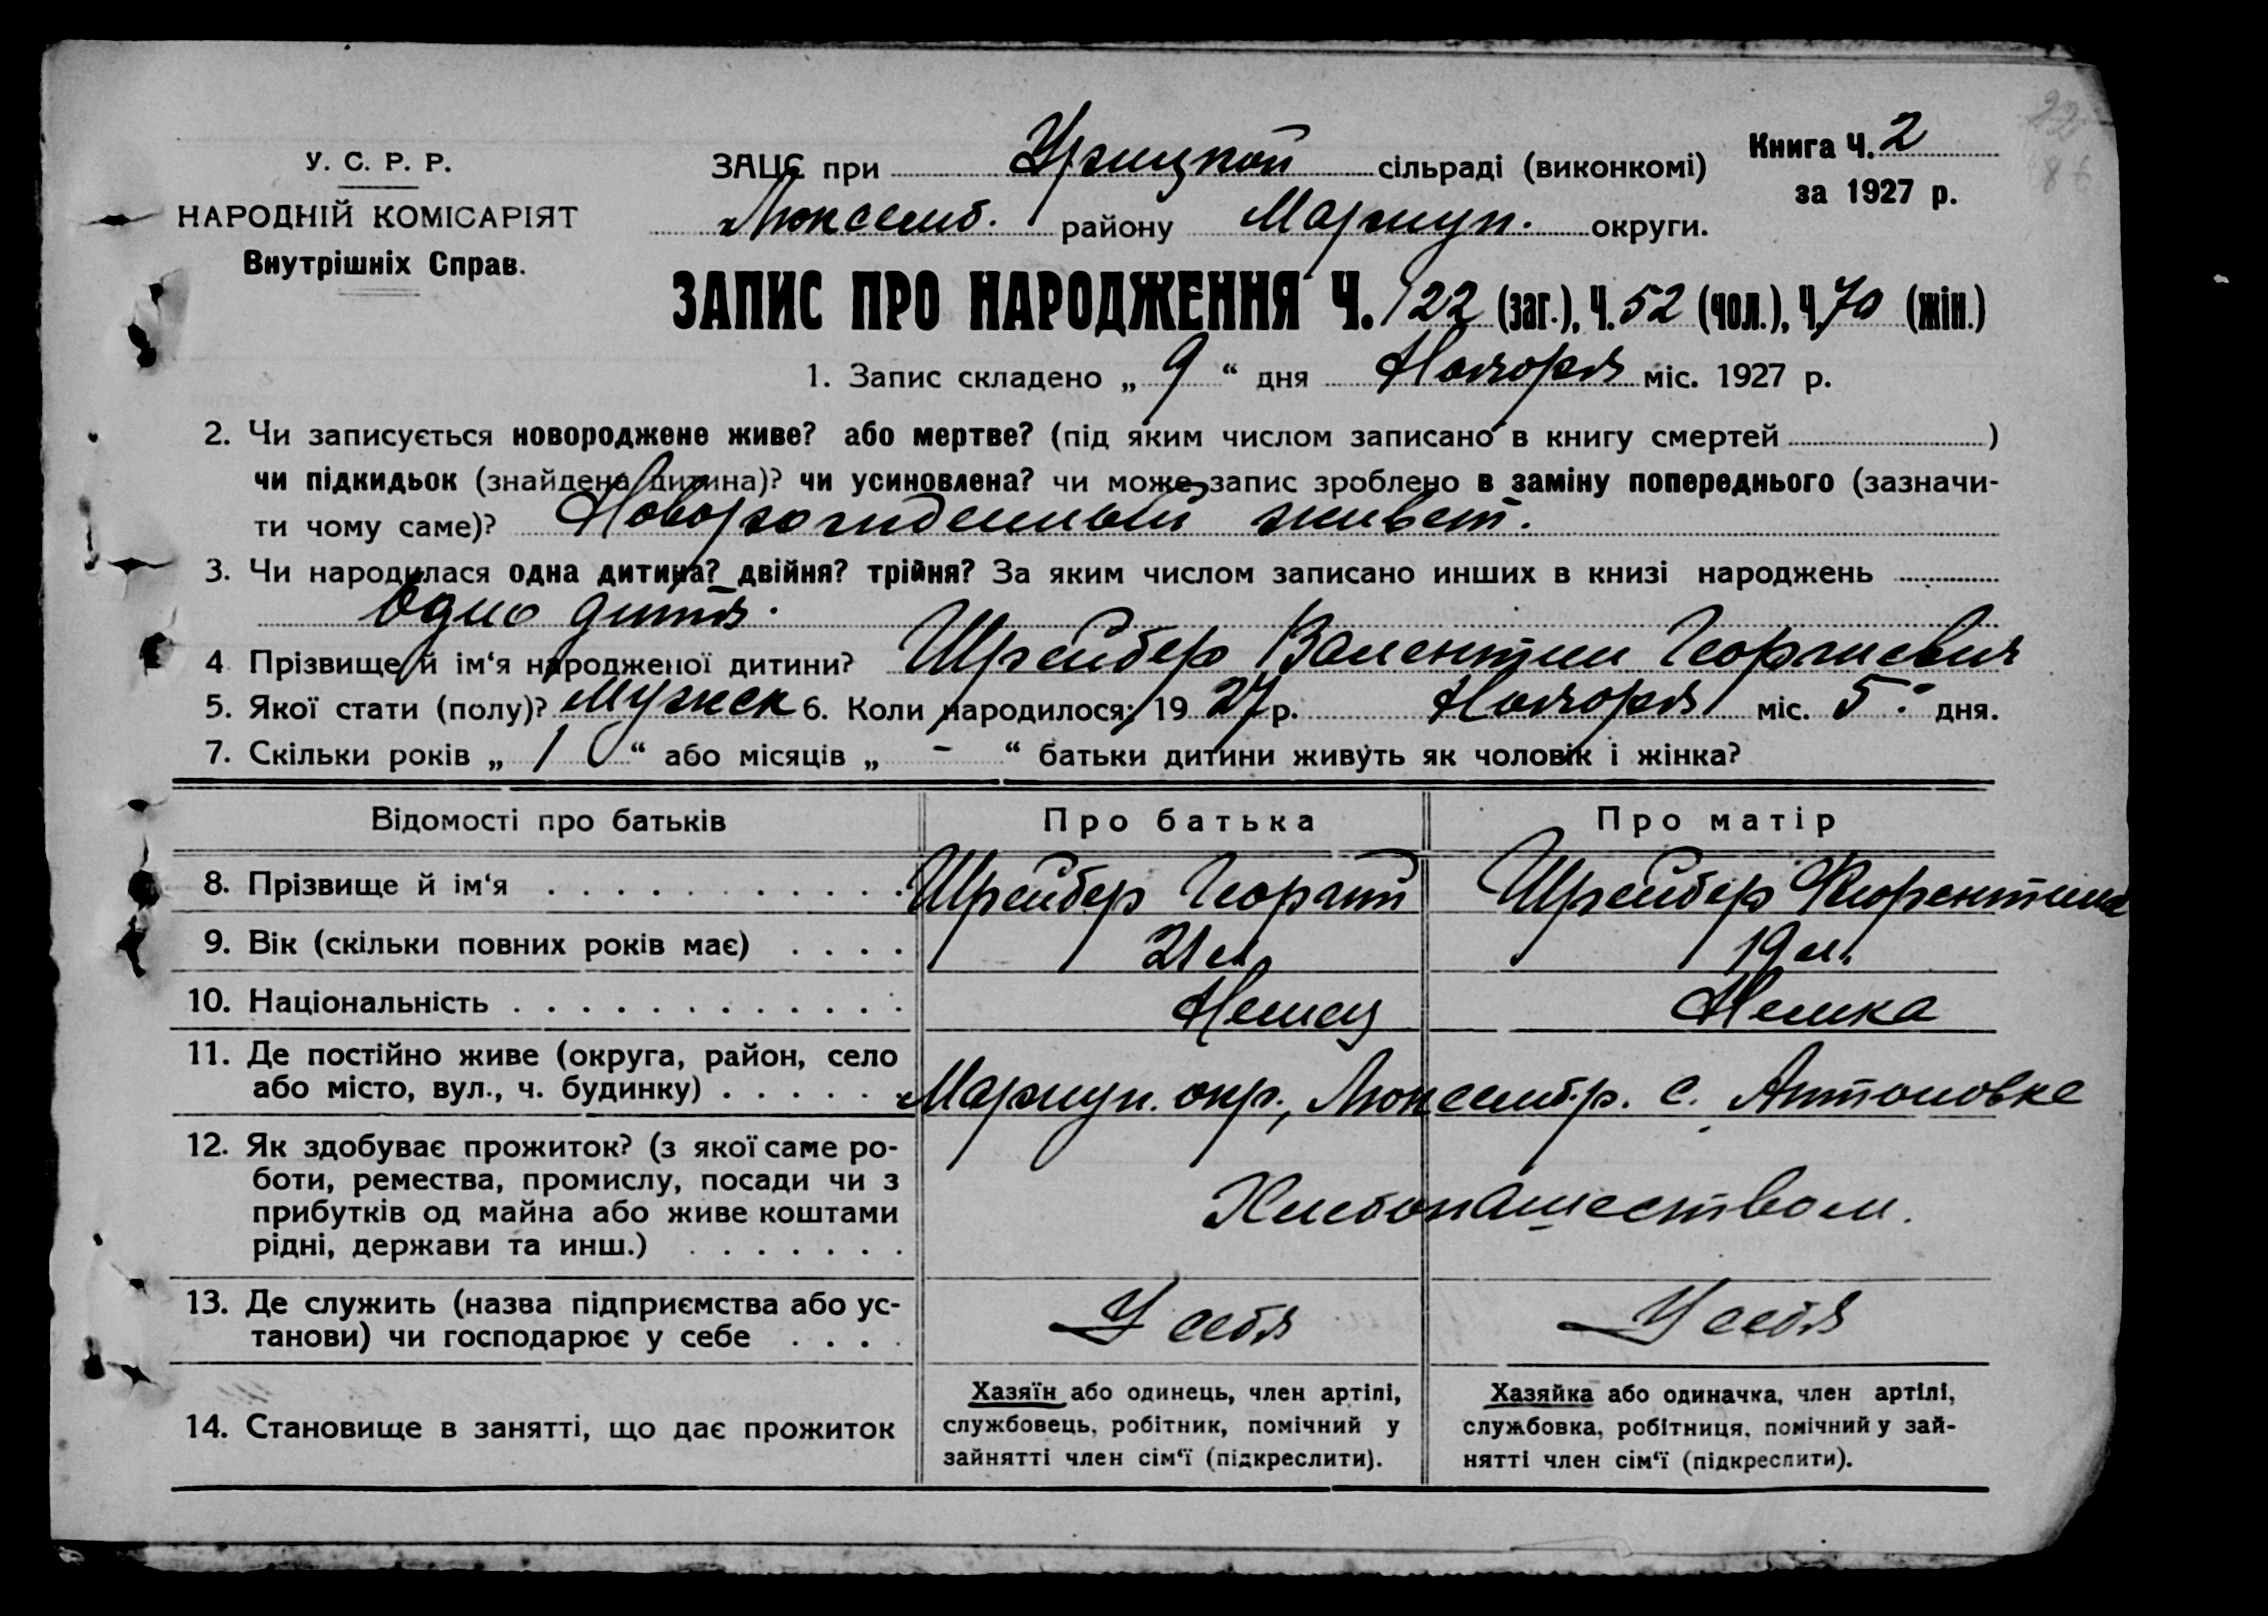 У. С. Р. Р.
НАРОДНІЙ КОМІСАРІЯТ
Внутрішніх Справ.
ЗАЦС при Урицкой сільраді (виконкомі)
Люксемб. району Мариуп. округи.
Книга Ч. 2
за 1927 р.
ЗАПИС ПРО НАРОДЖЕННЯ Ч. 122 (заг.), Ч. 52 (чол.), Ч. 70 (жін.)
1. Запис складено „ 9 “ дня Ноября міс. 1927 р.
2. Чи записується новороджене живе? або мертве? (під яким числом записано в книгу смертей )
чи підкидьок (знайдена дитина)? чи усиновлена? чи може запис зроблено в заміну попереднього (зазначи-
ти чому саме)? Новорожденный живет.
3. Чи народилася одна дитина? двійня? трійня? За яким числом записано инших в книзі народжень
Одно дитя.
4 Прізвище й ім‘я народженої дитини? Шрейбер Валентин Георгиевич
5. Якої стати (полу)? Мужск 6. Коли народилося; 19 27 р. Ноября міс. 5 дня.
7. Скільки років „ 1 “ або місяців „ - “ батьки дитини живуть як чоловік і жінка?
Відомості про батьків Про батька Про матір
8. Прізвище й ім‘я Шрейбер Георгий Шрейбер Флорентина
9. Вік (скільки повних років має) 21 л. 19 л.
10. Національність Немец Немка
11. Де постійно живе (округа, район, село
або місто, вул., ч. будинку) Мариуп. окр., Люксемб. р. с. Антоновке
12. Як здобуває прожиток? (з якої саме ро-
боти, ремества, промислу, посади чи з
прибутків од майна або живе коштами
рідні, держави та инш.)
Хлебопашеством.
13. Де служить (назва підприємства або ус-
танови) чи господарює у себе
У себя У себя
14. Становище в занятті, що дає прожиток
Хазяїн або одинець, член артілі,
службовець, робітник, помічний у
зайнятті член сім‘ї (підкреслити).
Хазяйка або одиначка, член артілі,
службовка, робітниця, помічний у зай-
нятті член сім‘ї (підкреслити).